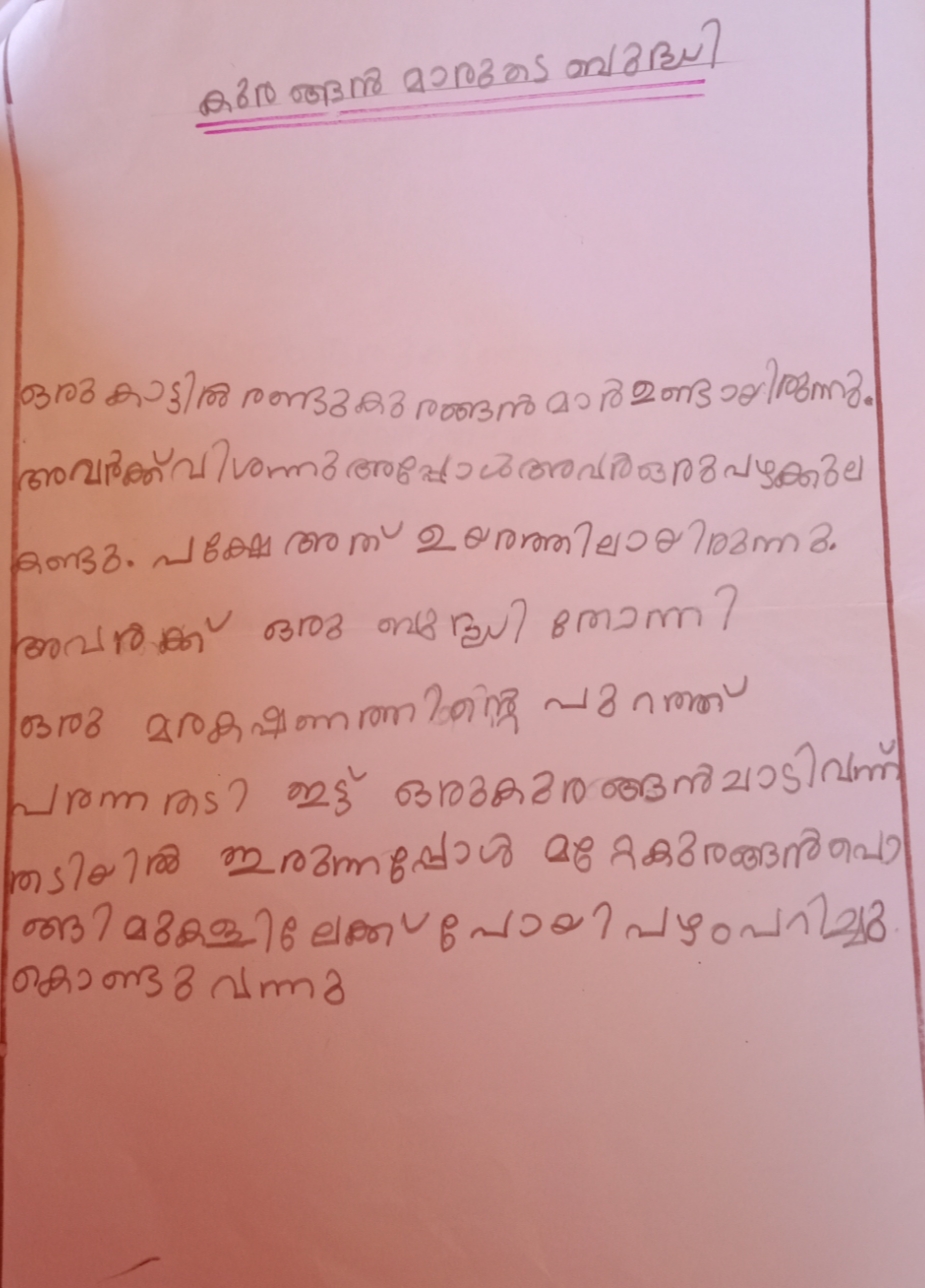 കുരങ്ങൻ മാരുടെ ബുദ്ധി
ഒരു കാട്ടിൽ രണ്ടു കുരങ്ങൻ മാർ ഉണ്ടായിരുന്നു.
അവർക്ക് വിശന്നു അപ്പോൾ അവർ ഒരു പഴക്കുല
കണ്ടു. പക്ഷേ അത് ഉയരത്തിലായിരുന്നു.
അവർക്ക് ഒരു ബുദ്ധി തോന്നി
ഒരു മരകഷണത്തിന്റെ പുറത്ത്
പരന്ന തടി ഇട്ട് ഒരു കുരങ്ങൻ ചാടി വന്ന്
തടിയിൽ ഇരുന്നപ്പോൾ മറ്റേ കുരങ്ങൻ പൊ
ങ്ങി മുകളിലേക്ക് പോയി പഴം പറിച്ചു
കൊണ്ടു വന്നു